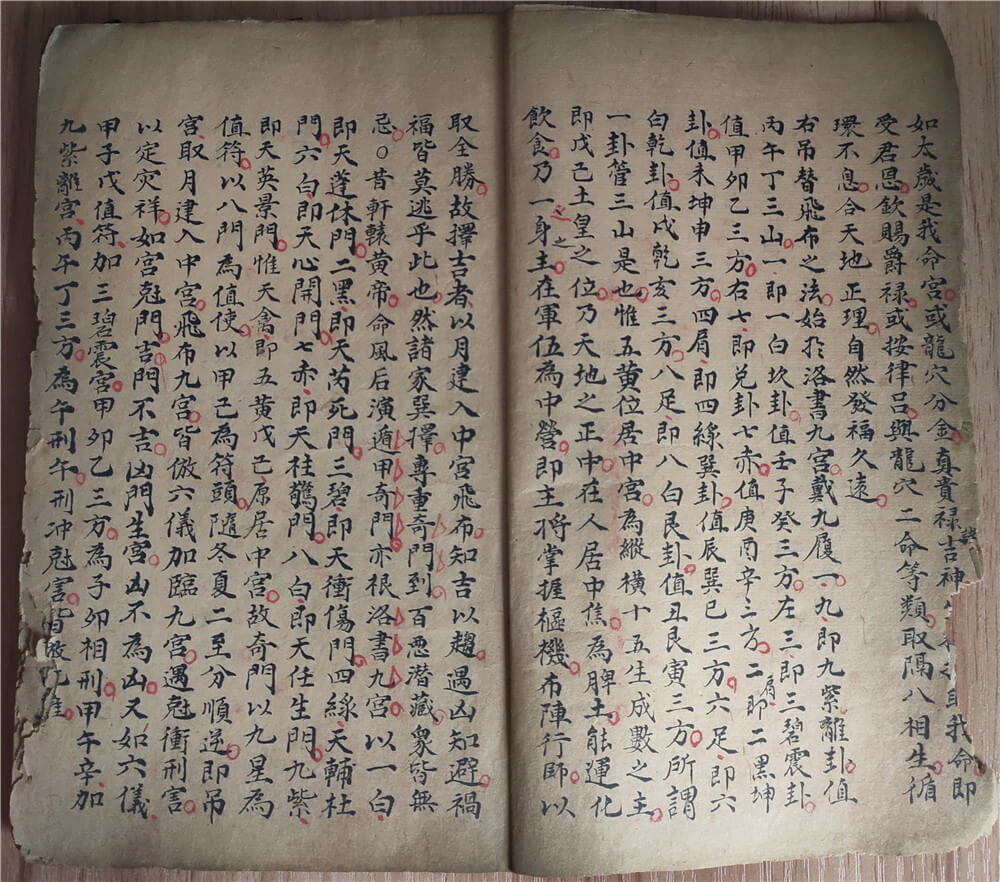 如太歲是我命宮或龍穴分金真貴禄吉神我命即
受君恩欽賜爵禄或按律吕與龍穴二命等類取隔八相生循
環不息合天地正理自然發福久遠
右吊替飛布之法始於洛書九宮戴九履一九即九紫離卦值
丙午丁三山一即一白坎卦值壬子癸三方左三即三碧震卦
值甲卯乙三方右七即兑卦七赤值庚酉辛三方二肩即二黑坤
卦值未坤申三方四肩即四緑巽卦值辰巽巳三方六足即六
白乾卦值戌乾亥三方八足即八白艮卦值丑艮寅三方所謂
一卦管三山是也惟五黄位居中宮為縱横十五生成數之主
即戊己土皇之位乃天地之正中在人居中焦為脾土能運化
飲食乃一身之主在軍伍為中營即主將掌握樞機布陣行師以
取全勝故擇吉者以月建入中宮飛布知吉以趨遇凶知避禍
福皆莫逃乎此也然諸家巽擇專重奇門到百惡潜藏衆皆無
忌○昔軒轅黄帝命風后演遁甲奇門亦根洛書九宮以一白
即天蓬休門二黑即天芮死門三碧即天衝傷門四緑天輔杜
門六白即天心開門七赤即天柱驚門八白即天任生門九紫
即天英景門惟天禽即五黄戊己原居中宮故奇門以九星為
值符以八門為值使以甲己為符頭隨冬夏二至分順逆即吊
宮取月建入中宮飛布九宮皆倣六儀加臨九宮遇尅衝刑害
以定灾祥如宮尅門吉門不吉凶門生宮凶不為凶又如六儀
甲子戊值符加三碧震宮甲卯乙三方為子卯相刑甲午辛加
九紫離宮丙午丁三方為午刑午刑冲尅害皆倣